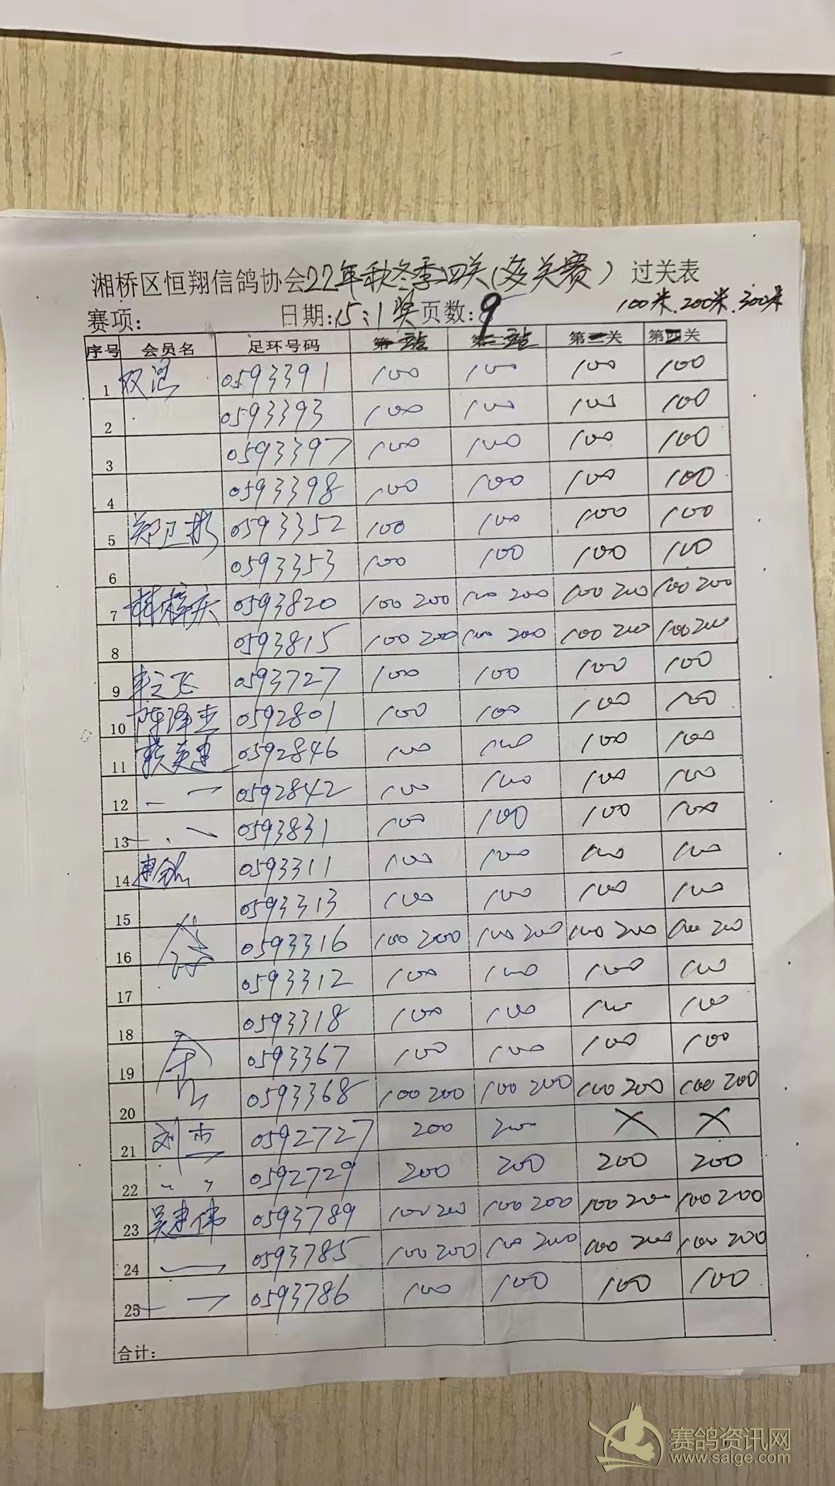 湘桥区恒翔信鸽协会22年秋冬季四关(多关赛) 过关表
赛项: 日期:15:1奖页数:9 100米.200米.300米
序号 会员名 足环号码 第一站 第二站 第三关 第四关
1 双温 0593391 100 100 100 100
2 0593393 100 100 100 100
3 0593397 100 100 100 100
4 0593398 100 100 100 100
5 郑卫彬 0593352 100 100 100 100
6 0593353 100 100 100 100
7 林梓庆 0593820 100 200 100 200 100 200 100 200
8 0593815 100 200 100 200 100 200 100 200
9 立飞 0593727 100 100 100 100
10 陈泽杰 0592801 100 100 100 100
11 英建 0592846 100 100 100 100
12 0592842 100 100 100 100
13 0593831 100 100 100 100
14 0593311 100 100 100 100
15 0593313 100 100 100 100
16 0593316 100 200 100 200 100 200 100 200
17 0593312 100 100 100 100
18 0593318 100 100 100 100
19 0593367 100 100 100 100
20 0593368 100 200 100 200 100 200 100 200
21 刘杰 0592727 200 200 X X
22 " " 0592729 200 200 200 200
23 吴建伟 0593789 100 200 100 200 100 200 100 200
24 0593785 100 200 100 200 100 200 100 200
25 0593786 100 100 100 100
合计:
赛鸽资讯网
www.saige.com